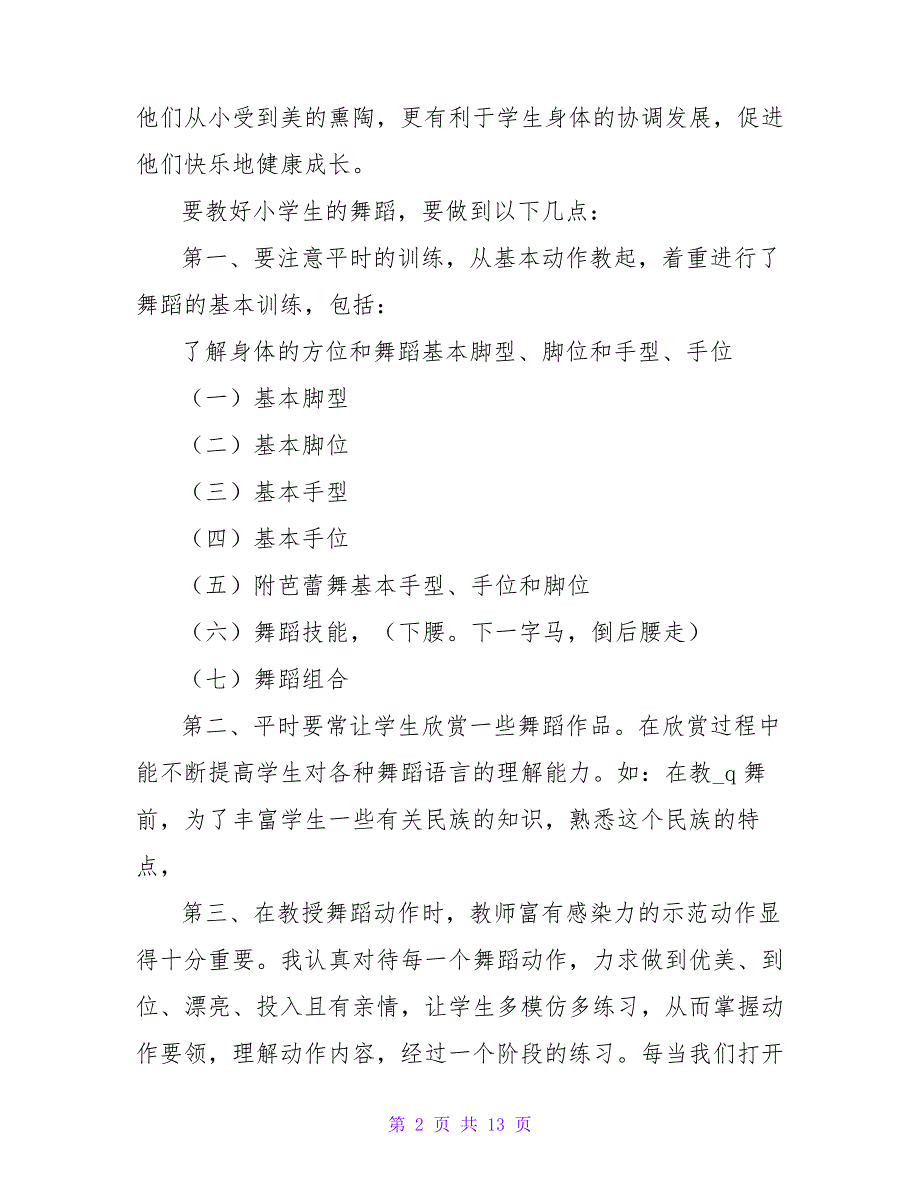 他们从小受到美的熏陶，更有利于学生身体的协调发展，促进
他们快乐地健康成长。
要教好小学生的舞蹈，要做到以下几点：
第一、要注意平时的训练，从基本动作教起，着重进行了
舞蹈的基本训练，包括：
了解身体的方位和舞蹈基本脚型、脚位和手型、手位
（一）基本脚型
（二）基本脚位
（三）基本手型
（四）基本手位
（五）附芭蕾舞基本手型、手位和脚位
（六）舞蹈技能，（下腰。下一字马，倒后腰走）
（七）舞蹈组合
第二、平时要常让学生欣赏一些舞蹈作品。在欣赏过程中
能不断提高学生对各种舞蹈语言的理解能力。如：在教_q 舞
前，为了丰富学生一些有关民族的知识，熟悉这个民族的特
点，
第三、在教授舞蹈动作时，教师富有感染力的示范动作显
得十分重要。我认真对待每一个舞蹈动作，力求做到优美、到
位、漂亮、投入且有亲情，让学生多模仿多练习，从而掌握动
作要领，理解动作内容，经过一个阶段的练习。每当我们打开
第 2 页 共 13 页